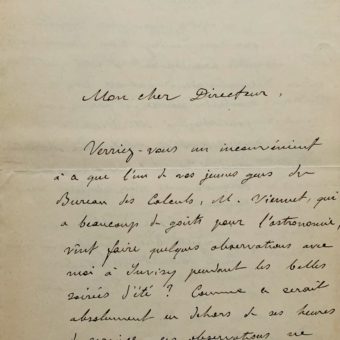 Mon cher Directeur,
Verriez-vous un inconvénient
à ce que l'un de vos jeunes gens du
Bureau des Calculs, M. Viennet, qui
a beaucoup de goûts pour l'astronomie,
vînt faire quelques observations avec
moi à Juvisy pendant les belles
soirées d'été ? Comme ce serait
absolument en dehors de ses heures
de service, ces observations ne